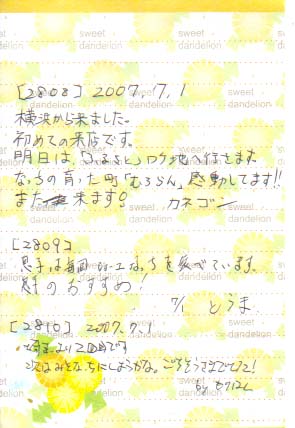 sweet dandelion
[2808] 2007.7.1
横浜から来ました。
初めての来店です。
明日は、「ふるさと」ロケ地へ行きます
なっちの育った町「むろらん」感動してます!!
また来ます。 カネゴン
[2809]
息子は毎回 なっちを食べています。
のおすすめ!
7/1 とうま
[2810] 2007.7.1
埼玉より2回目です
次はみそなっちにしようかな。ごちそうさまでした!
by